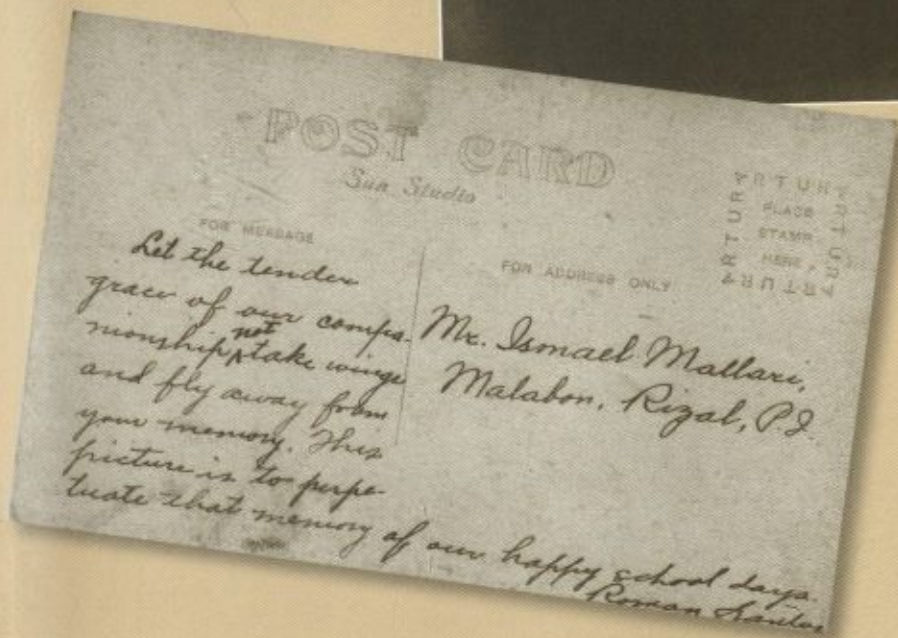 POST CARD
Sun Studio
ARTURA
ARTURA
ARTURA
ARTURA
PLACE
STAMP
HERE
FOR MESSAGE
Let the tender
grace of our compa-
nionship not take wings
and fly away from
your memory. This
picture is to perpe-
tuate that memory of our happy school days.
Roman Santos
FOR ADDRESS ONLY
Mr. Ismael Mallari,
Malabon, Rizal, P.I.